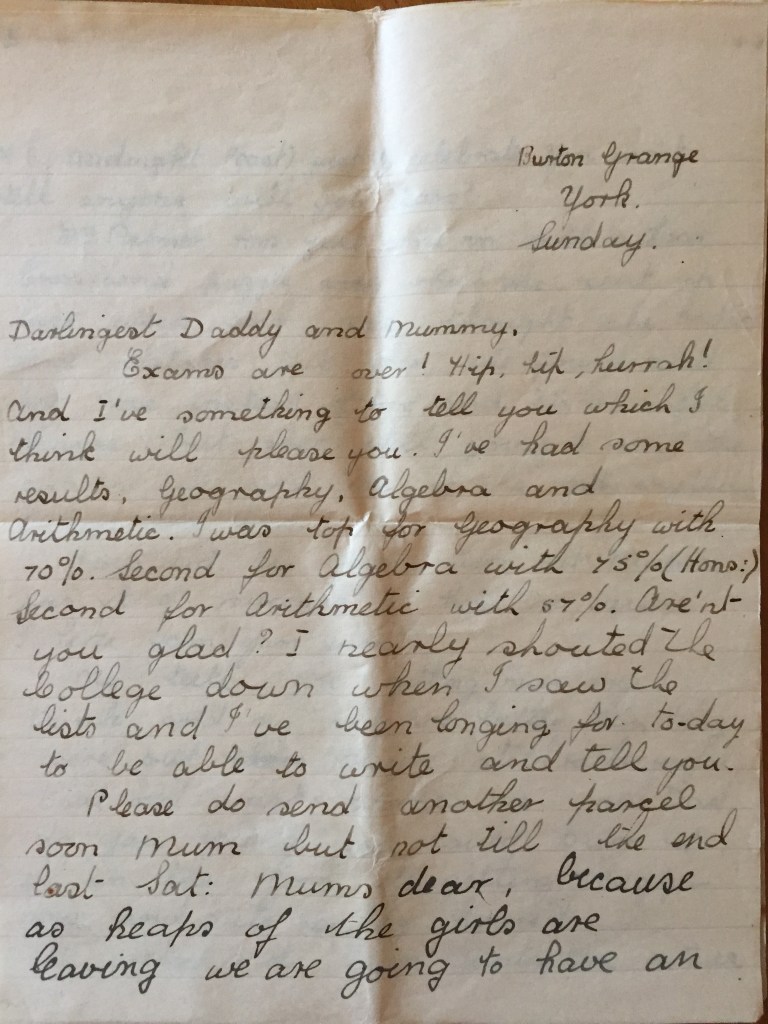 Burton Grange
York.
Sunday.
Darlingest Daddy and Mummy,
Exams are over! Hip, hip, hurrah!
And I've something to tell you which I
think will please you. I've had some
results, Geography, Algebra and
Arithmetic. I was top for Geography with
70%. Second for Algebra with 75% (Hons:)
Second for Arithmetic with 67%. Are'nt
you glad? I nearly shouted the
College down when I saw the
lists and I've been longing for to-day
to be able to write and tell you.
Please do send another parcel
soon Mum but not till the end
last Sat: Mums dear, because
as heaps of the girls are
leaving we are going to have an